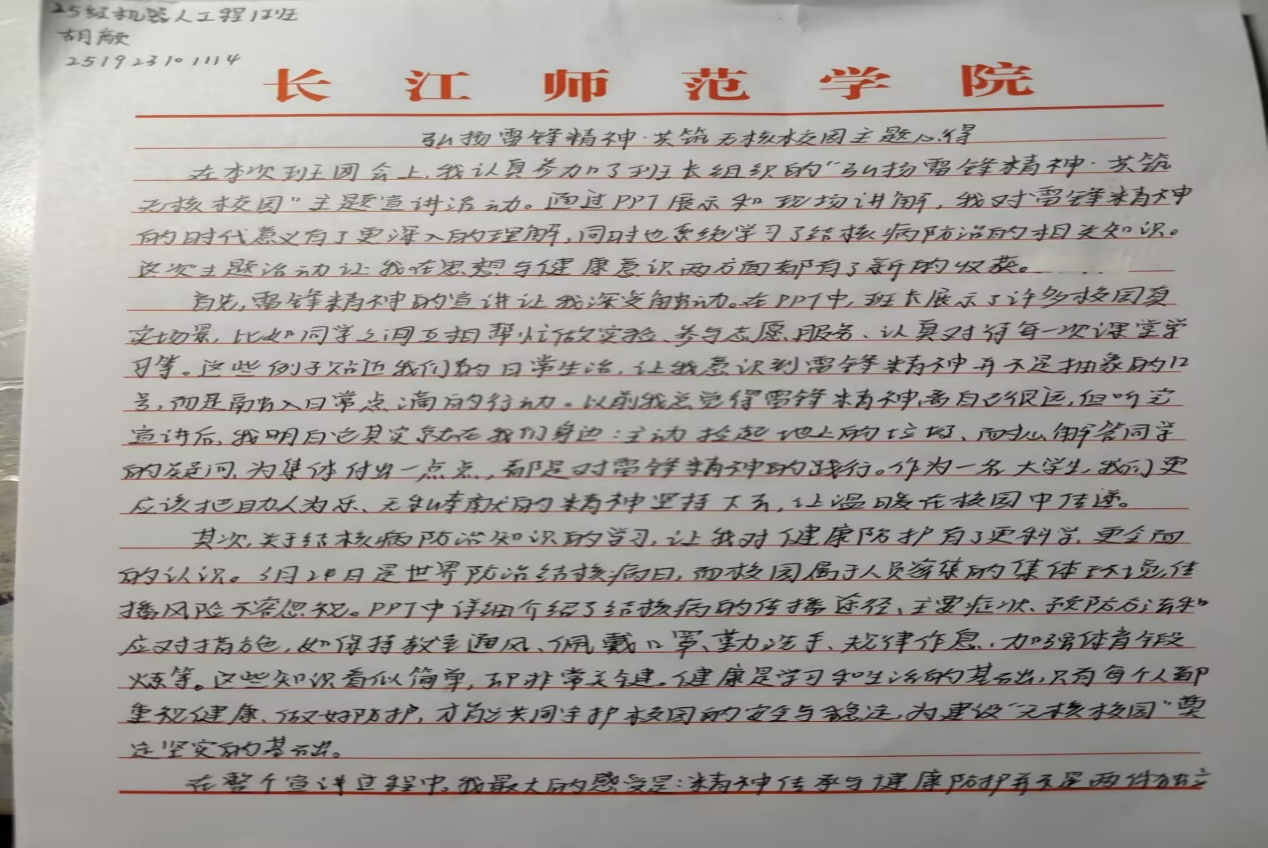 25级机器人工程1班
胡颜
251923101114
长江师范学院
弘扬雷锋精神·共筑无核校园主题心得
在本次班团会上,我认真参加了班长组织的“弘扬雷锋精神·共筑
无核校园”主题宣讲活动。通过PPT展示和现场讲解,我对雷锋精神
的时代意义有了更深入的理解,同时也系统学习了结核病防治的相关知识。
这次主题活动让我在思想与健康意识两方面都有了新的收获。
首先,雷锋精神的宣讲让我深受触动。在PPT中,班长展示了许多校园真
实场景,比如同学之间互相帮忙做实验、参与志愿服务、认真对待每一次课堂学
习等。这些例子贴近我们的日常生活,让我意识到雷锋精神并不是抽象的口
号,而是融入日常点滴的行动。以前我总觉得雷锋精神离自己很远,但听完
宣讲后,我明白它其实就在我们身边:主动捡起地上的垃圾、耐心解答同学
的疑问、为集体付出一点点,都是对雷锋精神的践行。作为一名大学生,我们更
应该把助人为乐、无私奉献的精神坚持下去,让温暖在校园中传递。
其次,关于结核病防治知识的学习,让我对健康防护有了更科学、更全面
的认识。3月24日是世界防治结核病日,而校园属于人员密集的集体环境,传
播风险不容忽视。PPT中详细介绍了结核病的传播途径、主要症状、预防方法和
应对措施,如保持教室通风、佩戴口罩、勤洗手、规律作息、加强体育锻
炼等。这些知识看似简单,却非常关键。健康是学习和生活的基础,只有每个人都
重视健康、做好防护,才能共同守护校园的安全与稳定,为建设“无核校园”奠
定坚实的基础。
在整个宣讲过程中,我最大的感受是:精神传承与健康防护并不是两件独立